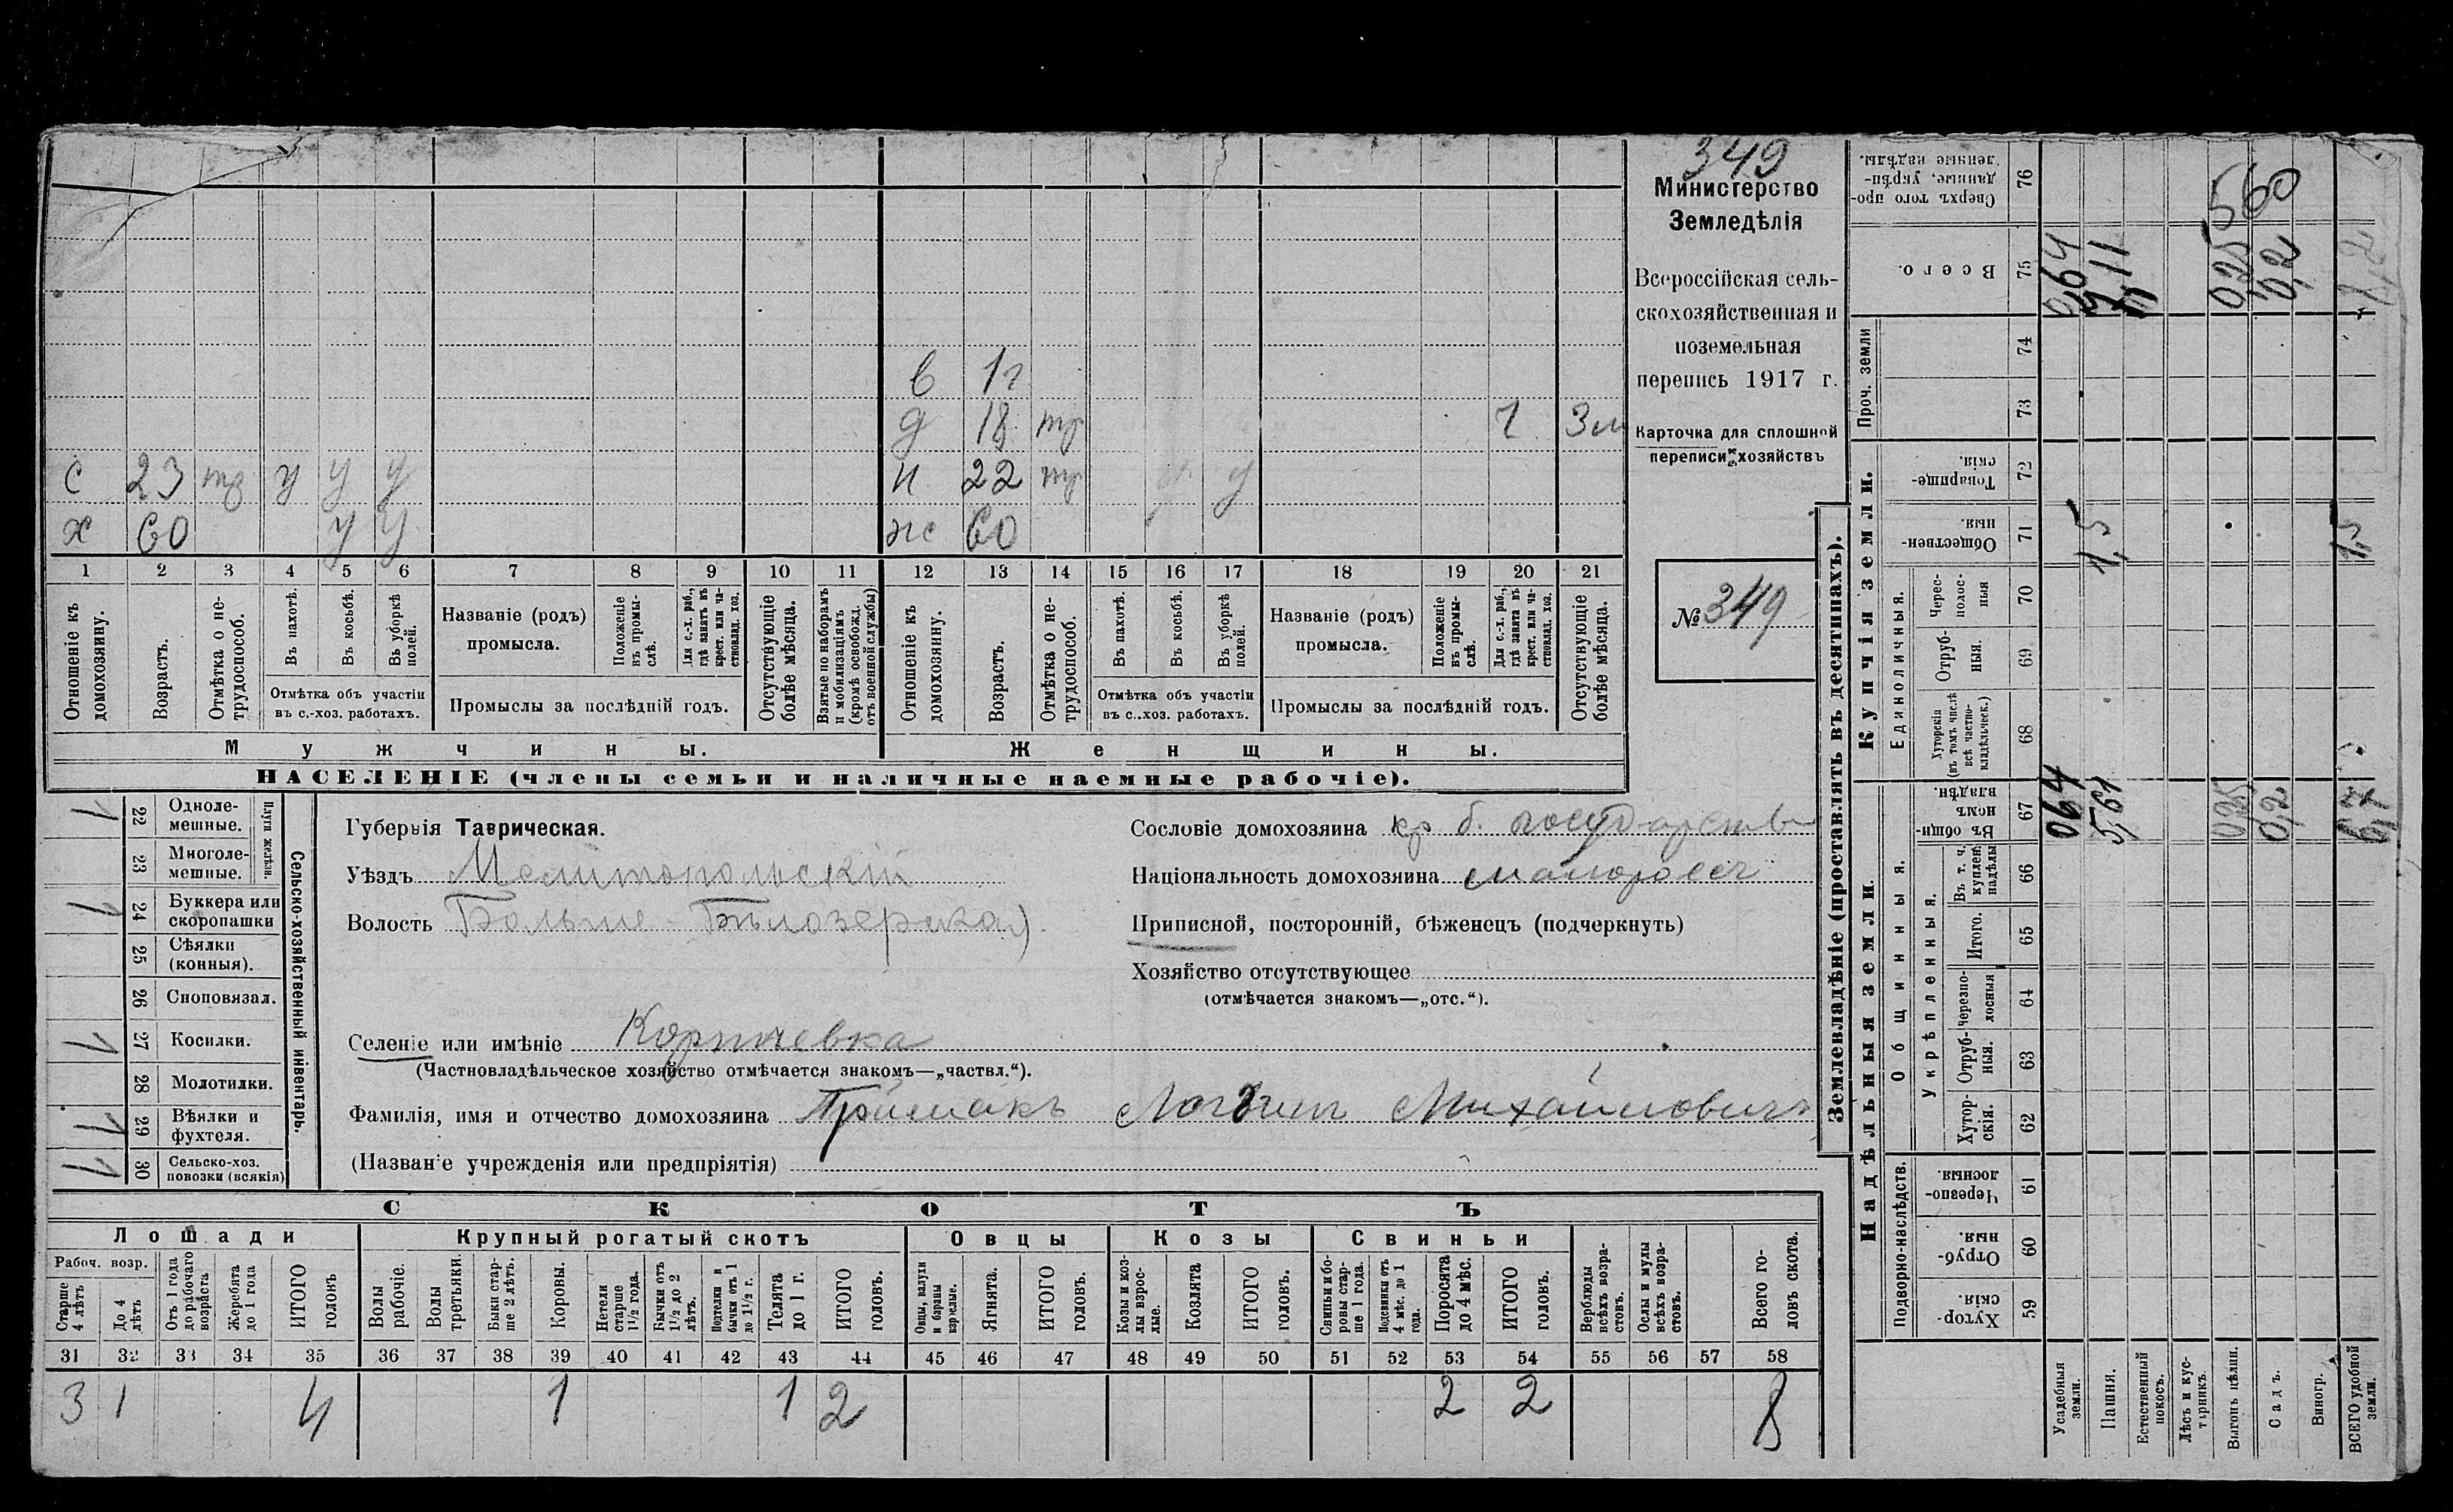 349
Министерство
Земледѣлія
Всероссійская сель-
скохозяйственная и
поземельная
перепись 1917 г.
Карточка для сплошной
переписи хозяйствъ
№ 349
в 1г
д 18 тр 1 3м
с 23 тр у у у н 22 тр у
х 60 у у ж 60
1 2 3 4 5 6 7 8 9 10 11 12 13 14 15 16 17 18 19 20 21
Отношеніе къ домохозяину.
Возрастъ.
Отмѣтка о не-трудоспособ.
Въ пахотѣ.
Въ косьбѣ.
Въ уборкѣ полей.
Отмѣтка объ участіи
въ с.-хоз. работахъ.
Названіе (родъ)
промысла.
Положеніе въ промы-слѣ.
Для с.-х. раб., гдѣ занятъ въ крест. или ча-стновлад. хоз.
Промыслы за послѣдній годъ.
Отсутствующіе болѣе мѣсяца.
Взятые по наборамъ и мобилизаціямъ (кромѣ освобожд. отъ военной службы)
Отношеніе къ домохозяину.
Возрастъ.
Отмѣтка о не-трудоспособ.
Въ пахотѣ.
Въ косьбѣ.
Въ уборкѣ полей.
Отмѣтка объ участіи
въ с.-хоз. работахъ.
Названіе (родъ)
промысла.
Положеніе въ промы-слѣ.
Для с.-х. раб., гдѣ занятъ въ крест. или ча-стновлад. хоз.
Промыслы за послѣдній годъ.
Отсутствующіе болѣе мѣсяца.
Мужчины. Женщины.
НАСЕЛЕНІЕ (члены семьи и наличные наемные рабочіе).
Сельско-хозяйственный инвентарь.
Плуги желѣзн.
1 22 Одноле-мешные.
23 Многоле-мешные.
1 24 Буккера или скоропашки
25 Сѣялки (конныя).
26 Сноповязал.
1 27 Косилки.
28 Молотилки.
1 29 Вѣялки и фухтеля.
1 30 Сельско-хоз. повозки (всякія)
Губернія Таврическая.
Уѣздъ Мелитопольскій
Волость Больше-Бѣлозерская
Селеніе или имѣніе
(Частновладѣльческое хозяйство отмѣчается знакомъ—„частвл.“).
Фамилія, имя и отчество домохозяина Приймакъ Логвинъ Михайловичъ
(Названіе учрежденія или предпріятія)
Сословіе домохозяина кр б. государств
Національность домохозяина малороссъ
Приписной, посторонній, бѣженецъ (подчеркнуть)
Хозяйство отсутствующее
(отмѣчается знакомъ—„отс.“).
СКОТЪ
Лошади Крупный рогатый скотъ Овцы Козы Свиньи
Рабоч. возр.
Старше 4 лѣтъ
До 4 лѣтъ
Отъ 1 года до рабочаго возраста
Жеребята до 1 года
ИТОГО головъ
Волы рабочіе.
Волы третьяки.
Быки стар-ше 2 лѣтъ.
Коровы.
Нетели старше 1½ года.
Бычки отъ 1½ до 2 лѣтъ.
Подтелки и бычки отъ 1 до 1½ г.
Телята до 1 г.
ИТОГО головъ.
Овцы, валухи и бараны взрослые.
Ягнята.
ИТОГО головъ.
Козы и коз-лы взрос-лые.
Козлята
ИТОГО головъ.
Свиньи и бо-ровы стар-ше 1 года.
Подсвинки отъ 4 мѣс. до 1 года.
Поросята до 4 мѣс.
ИТОГО головъ.
Верблюды всѣхъ возра-стовъ.
Ослы и мулы всѣхъ возра-стовъ.
Всего го-ловъ скота.
31 32 33 34 35 36 37 38 39 40 41 42 43 44 45 46 47 48 49 50 51 52 53 54 55 56 57 58
3 1 4 1 1 2 2 2 8
Землевладѣніе (проставлять въ десятинахъ).
Надѣльныя земли. Купчія земли. Проч. земли
Подворно-наслѣдств.
Общинныя.
Укрѣпленныя.
Единоличныя.
Сверхъ того про-данные, укрѣп-ленные надѣлы. 76 560
Всего. 75 0,64 7,11 0,25 0,2
74
73
Товарище-скія. 72
Обществен-ныя. 71 1,5 1,5
Черес-полос-ныя 70
Отруб-ныя. 69
Хуторскія (въ томъ числѣ всѣ частно-владѣльческ.) 68
Въ общи-номъ владѣн. 67 0,64 5,61 0,25 0,2 6,7
Въ т. ч. куплен. надѣлы 66
Итого. 65
Черезпо-лосныя 64
Отруб-ныя. 63
Хутор-скія. 62
Черезпо-лосныя. 61
Отруб-ныя. 60
Хутор-скія. 59
Усадебныя земли.
Пашня.
Естественный покосъ.
Лѣсъ и кус-тарникъ.
Выгонъ цѣлин.
Садъ.
Виногр.
ВСЕГО удобной земли.